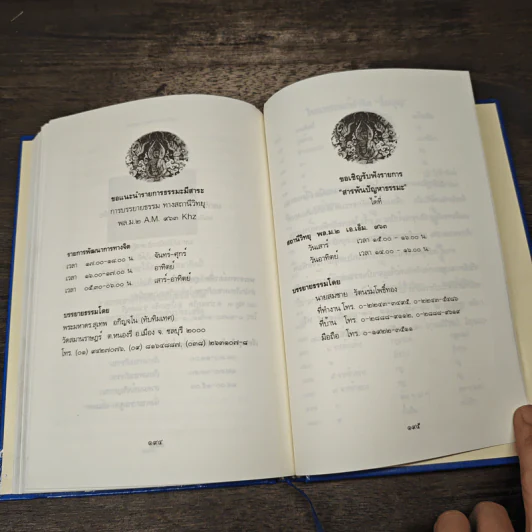 ขอแนะนำรายการธรรมะมีสาระ
การบรรยายธรรม ทางสถานีวิทยุ
พล.ม.๒ A.M. ๙๖๓ Khz
รายการพัฒนาการทางจิต
เวลา ๑๗.๐๐-๑๘.๐๐ น. จันทร์-ศุกร์
เวลา ๑๖.๐๐-๑๗.๐๐ น. อาทิตย์
เวลา ๐๕.๓๐-๐๖.๐๐ น. เสาร์-อาทิตย์
บรรยายธรรมโดย
พระมหาตร.สุเทพ อกิญจโน (ทับทิมเทศ)
วัดสมานราษฎร์ ต.หนองรี อ.เมือง จ. ชลบุรี ๒๐๐๐
โทร.
๑๙๔
ขอเชิญรับฟังรายการ
"สารพันปัญหาธรรมะ"
ได้ที่
สถานีวิทยุ พล.ม.๒ เอ.เอ็ม. ๙๖๓
วันเสาร์ เวลา ๑๕.๐๐ - ๑๖.๐๐ น.
วันอาทิตย์ เวลา ๑๔.๐๐ - ๑๖.๐๐ น.
บรรยายธรรมโดย
นายสมชาย รัตนร่มโพธิ์ทอง
ที่ทำงาน โทร.
ที่บ้าน โทร.
มือถือ โทร.
๑๙๕